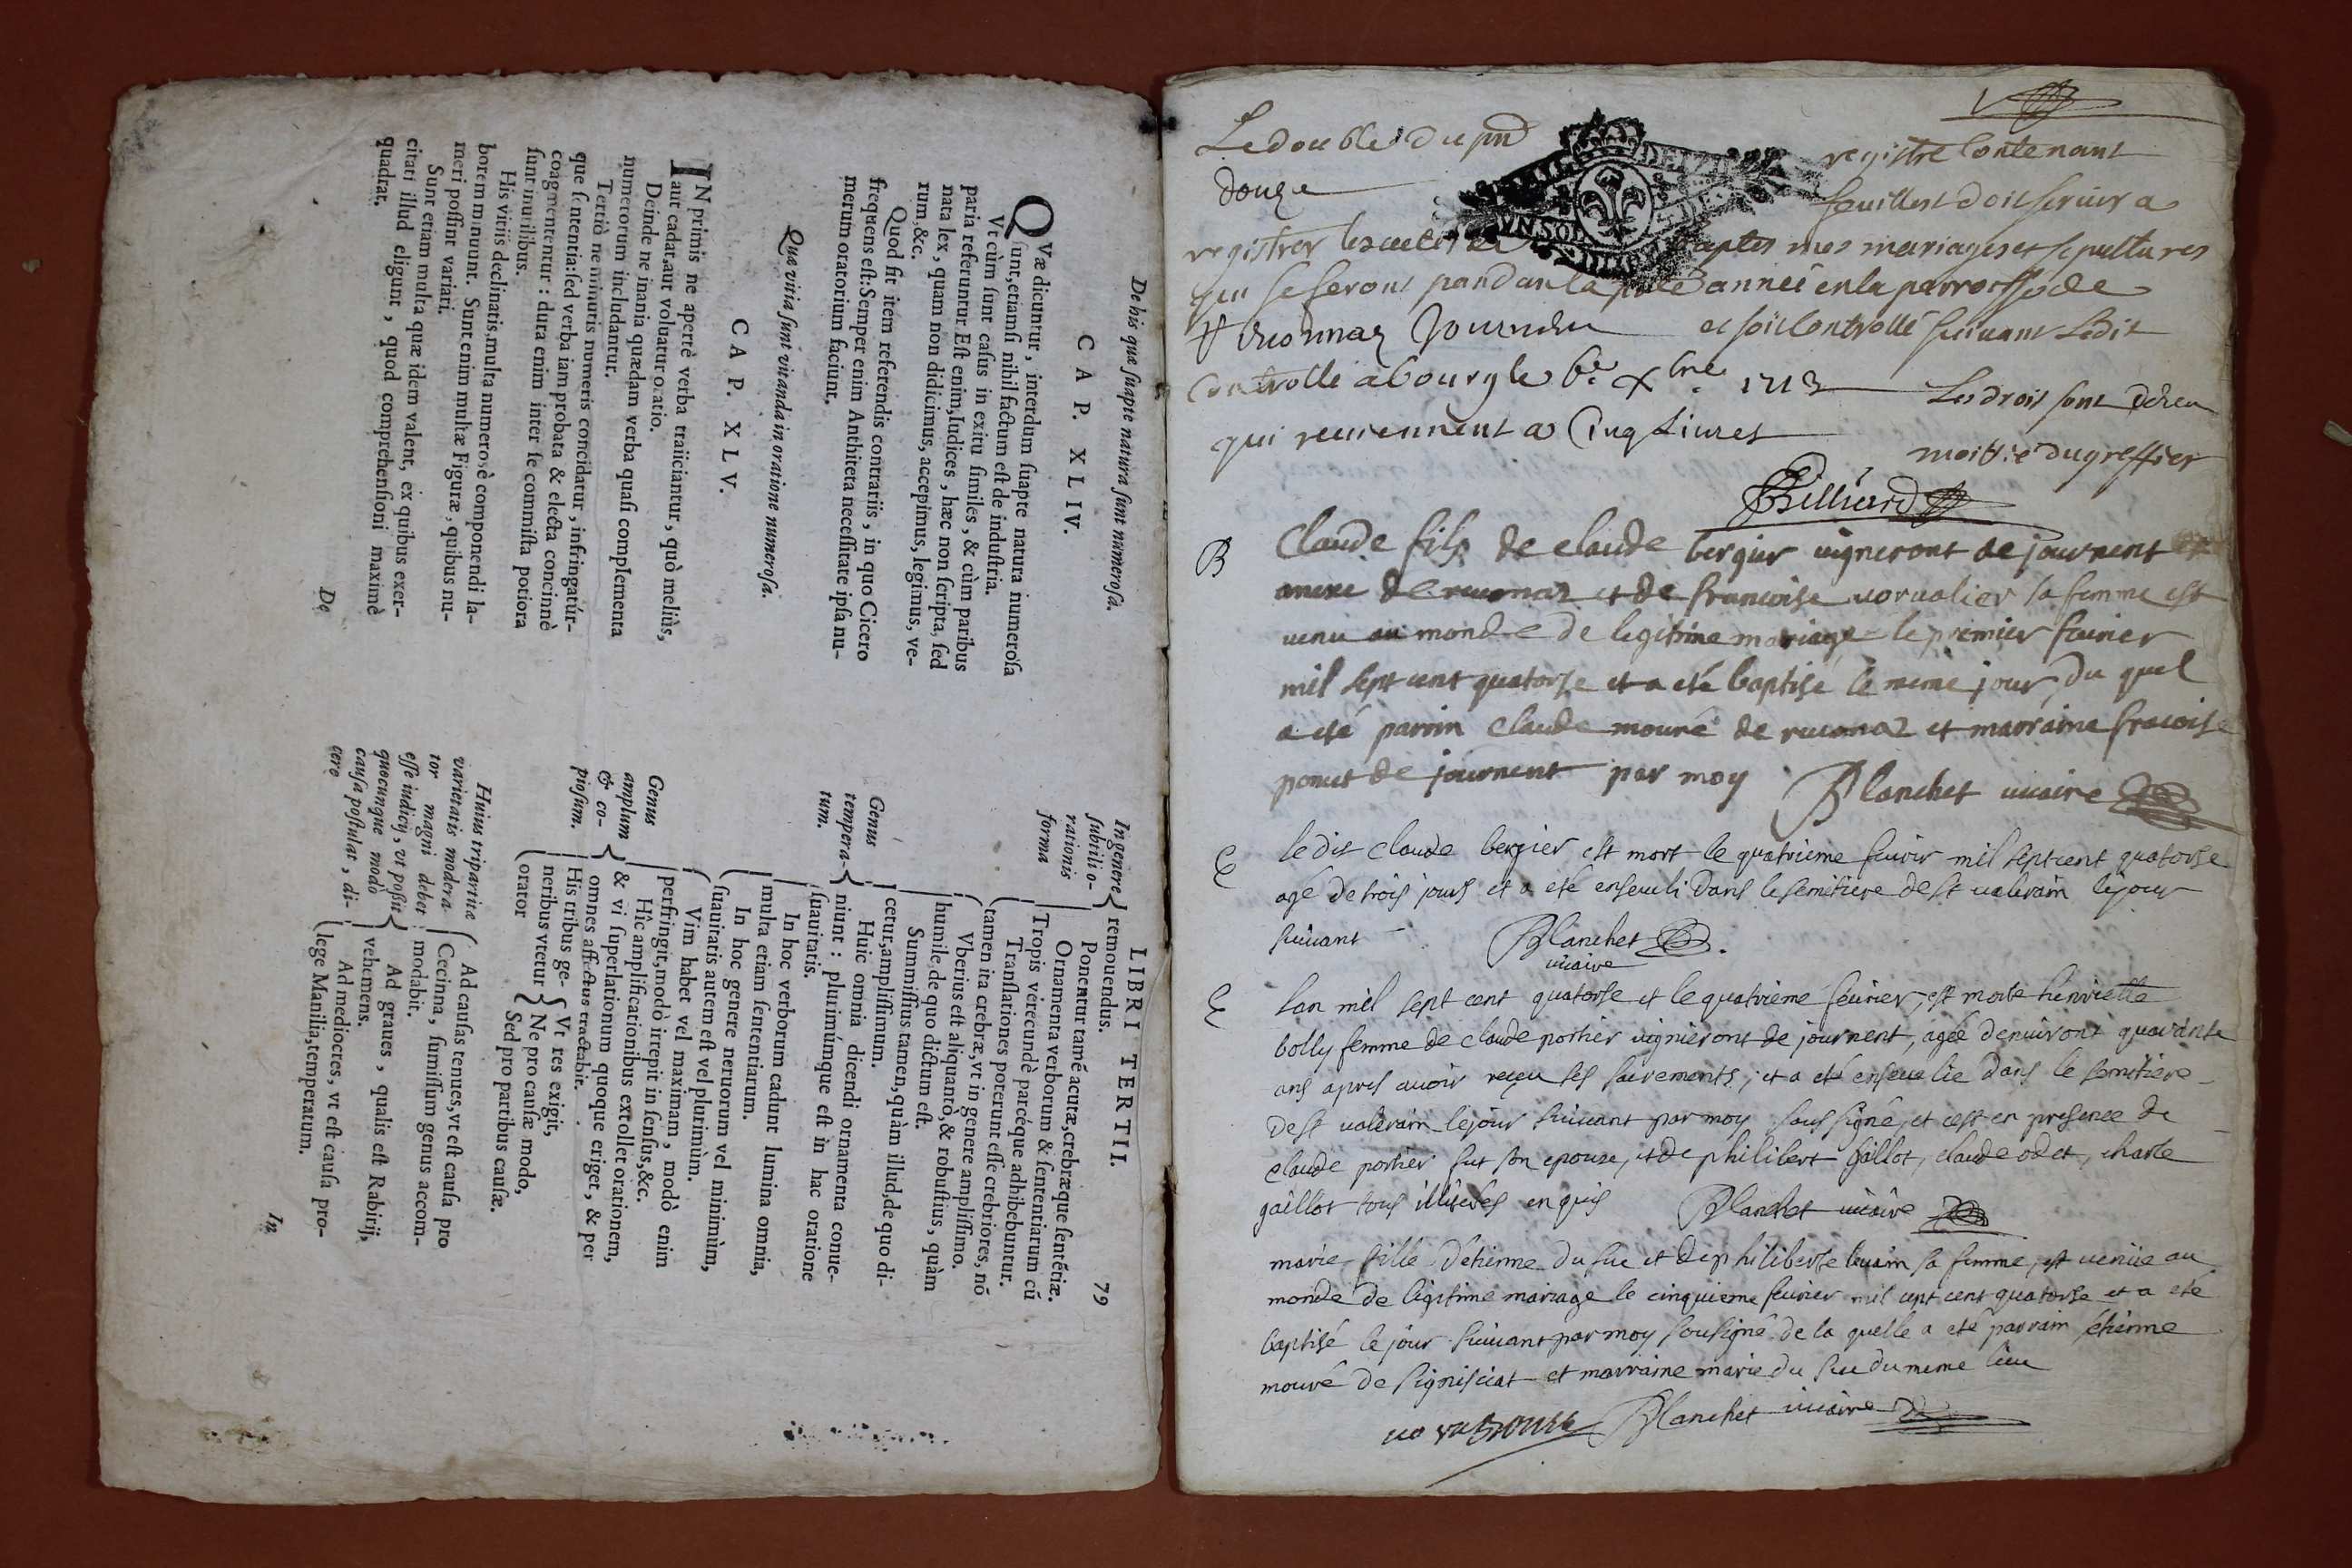 De his quæ ſuapte natura ſunt numeroſa.
CAP. XLIV.
QVæ dicuntur, interdum ſuapte natura numeroſa
ſunt, etiamſi nihil factum eſt de induſtria.
Vt cùm ſunt caſus in exitu ſimiles, & cùm paribus
paria referuntur Eſt enim, Iudices, hæc non ſcripta, ſed
nata lex, quam non didicimus, accepimus, legimus, ve-
rum, &c.
Quod fit item referendis contrariis, in quo Cicero
frequens eſt: Semper enim Anthiteta neceſſitate ipſa nu-
merum oratorium faciunt.
Quæ vitia ſunt vitanda in oratione numeroſa.
CAP. XLV.
IN primis ne apertè verba traiiciantur, quò meliùs,
aut cadat, aut voluatur oratio.
Deinde ne inania quædam verba quaſi complementa
numerorum includantur.
Tertiò ne minutis numeris concidatur, infringatúr-
que ſententia: ſed verba iam probata & electa concinnè
coagmententur: dura enim inter ſe commiſſa potiora
ſunt inutilibus.
His vitiis declinatis, multa numerosè componendi la-
borem minuunt. Sunt enim multæ Figuræ, quibus nu-
meri poſſint variari.
Sunt etiam multa quæ idem valent, ex quibus exer-
citati illud eligunt, quod comprehenſioni maximè
quadrat.
De
LIBRI TERTII. 79
In genere
ſubtili o-
rationis
forma
remouendus.
Ponentur tamẽ acutæ, crebræque ſentẽtiæ.
Ornamenta verborum & ſententiarum cũ
Tropis verecundè parcéque adhibebuntur.
Tranſlationes poterunt eſſe crebriores, nõ
tamen ita crebræ, vt in genere ampliſſimo.
Genus
tempera-
tum.
Vberius eſt aliquantò, & robuſtius, quàm
humile, de quo dictum eſt.
Summiſſius tamen, quàm illud, de quo di-
cetur, ampliſſimum.
Huic omnia dicendi ornamenta conue-
niunt: plurimúmque eſt in hac oratione
ſuauitatis.
Genus
amplum
& co-
pioſum.
In hoc verborum cadunt lumina omnia,
multa etiam ſententiarum.
In hoc genere neruorum vel minimùm,
ſuauitatis autem eſt vel plurimùm.
Vim habet vel maximam, modò enim
perfringit, modò irrepit in ſenſus, &c.
Hîc amplificationibus extollet orationem,
& vi ſuperlationum quoque eriget, & per
omnes affectus tractabit.
His tribus ge-
neribus vtetur
orator
Vt res exigit,
Ne pro cauſæ modo,
Sed pro partibus cauſæ.
Huius tripartitæ
varietatis modera-
tor magni debet
eſſe iudicij, vt poßit
quocunque modò
cauſa poſtulat, di-
cere
Ad cauſas tenues, vt eſt cauſa pro
Cecinna, ſumiſſum genus accom-
modabit.
Ad graues, qualis eſt Rabirij,
vehemens.
Ad mediocres, vt eſt cauſa pro-
lege Manilia, temperatum.
In
1
Le double du pnt registre contenant
douze feuillest doit servir a
registrer les actes de baptes mes mariages et sepultures
qui se feront pandant la pnte année en la parroisse de
Journan et soit controllé suivant ledit
Controlle a bourg le 6e xbre 1713
Les droit sont
qui reuiennent a Cinq Liures
moitie du greffier
Billiard
B
Claude fils de claude bergier uigneront de journent
anexe de reuonaz et de francoise uorualier sa femme est
uenu au monde de legitime mariage le premier feurier
mil sept cent quatorse et a eté baptisé le meme jour, du quel
a eté parrin claude mouné de reuonaz et marraine fracoise
ponut de journent par moy Blanchet uicaire
E
ledit claude bergier est mort le quatrieme feurir mil septcent quatorse
agé de trois jours et a eté enseueli dans le semitiere de st ualerain le jour
suiuant Blanchet
uicaire
E
lan mil sept cent quatorse et le quatrieme feurier, est morte henriette
bolly femme de claude portier uignieront de journent, agée denuiront quarante
ans apres auoir reçeu ses sacrements, et a eté enseuelie dans le semitiere
de st ualerain le jour suiuant par moy sous signé, et cest en presence de
claude portier fut son epoux, et de philibert gaillot, claude odet, charle
gaillot tous illiterés enquis Blanchet uicaire
marie fille détienne du suc et de philiberte leuain sa femme, est uenüe au
monde de legitime mariage le cinquieme feurier mil cept cent quatorse et a eté
baptisé le jour suiuant par moy sousigné. de la quelle a eté parrain étienne
mouré de signisiat et marraine marie du suc du meme lieu
Blanchet uicaire